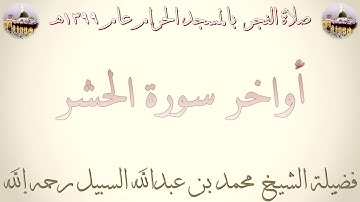 صلاة الفجر بالمسجد الحرام عام ١٣٩٩هـ
أواخر سورة الحشر
فضيلة الشيخ محمد بن عبدالله السبيل رحمه الله